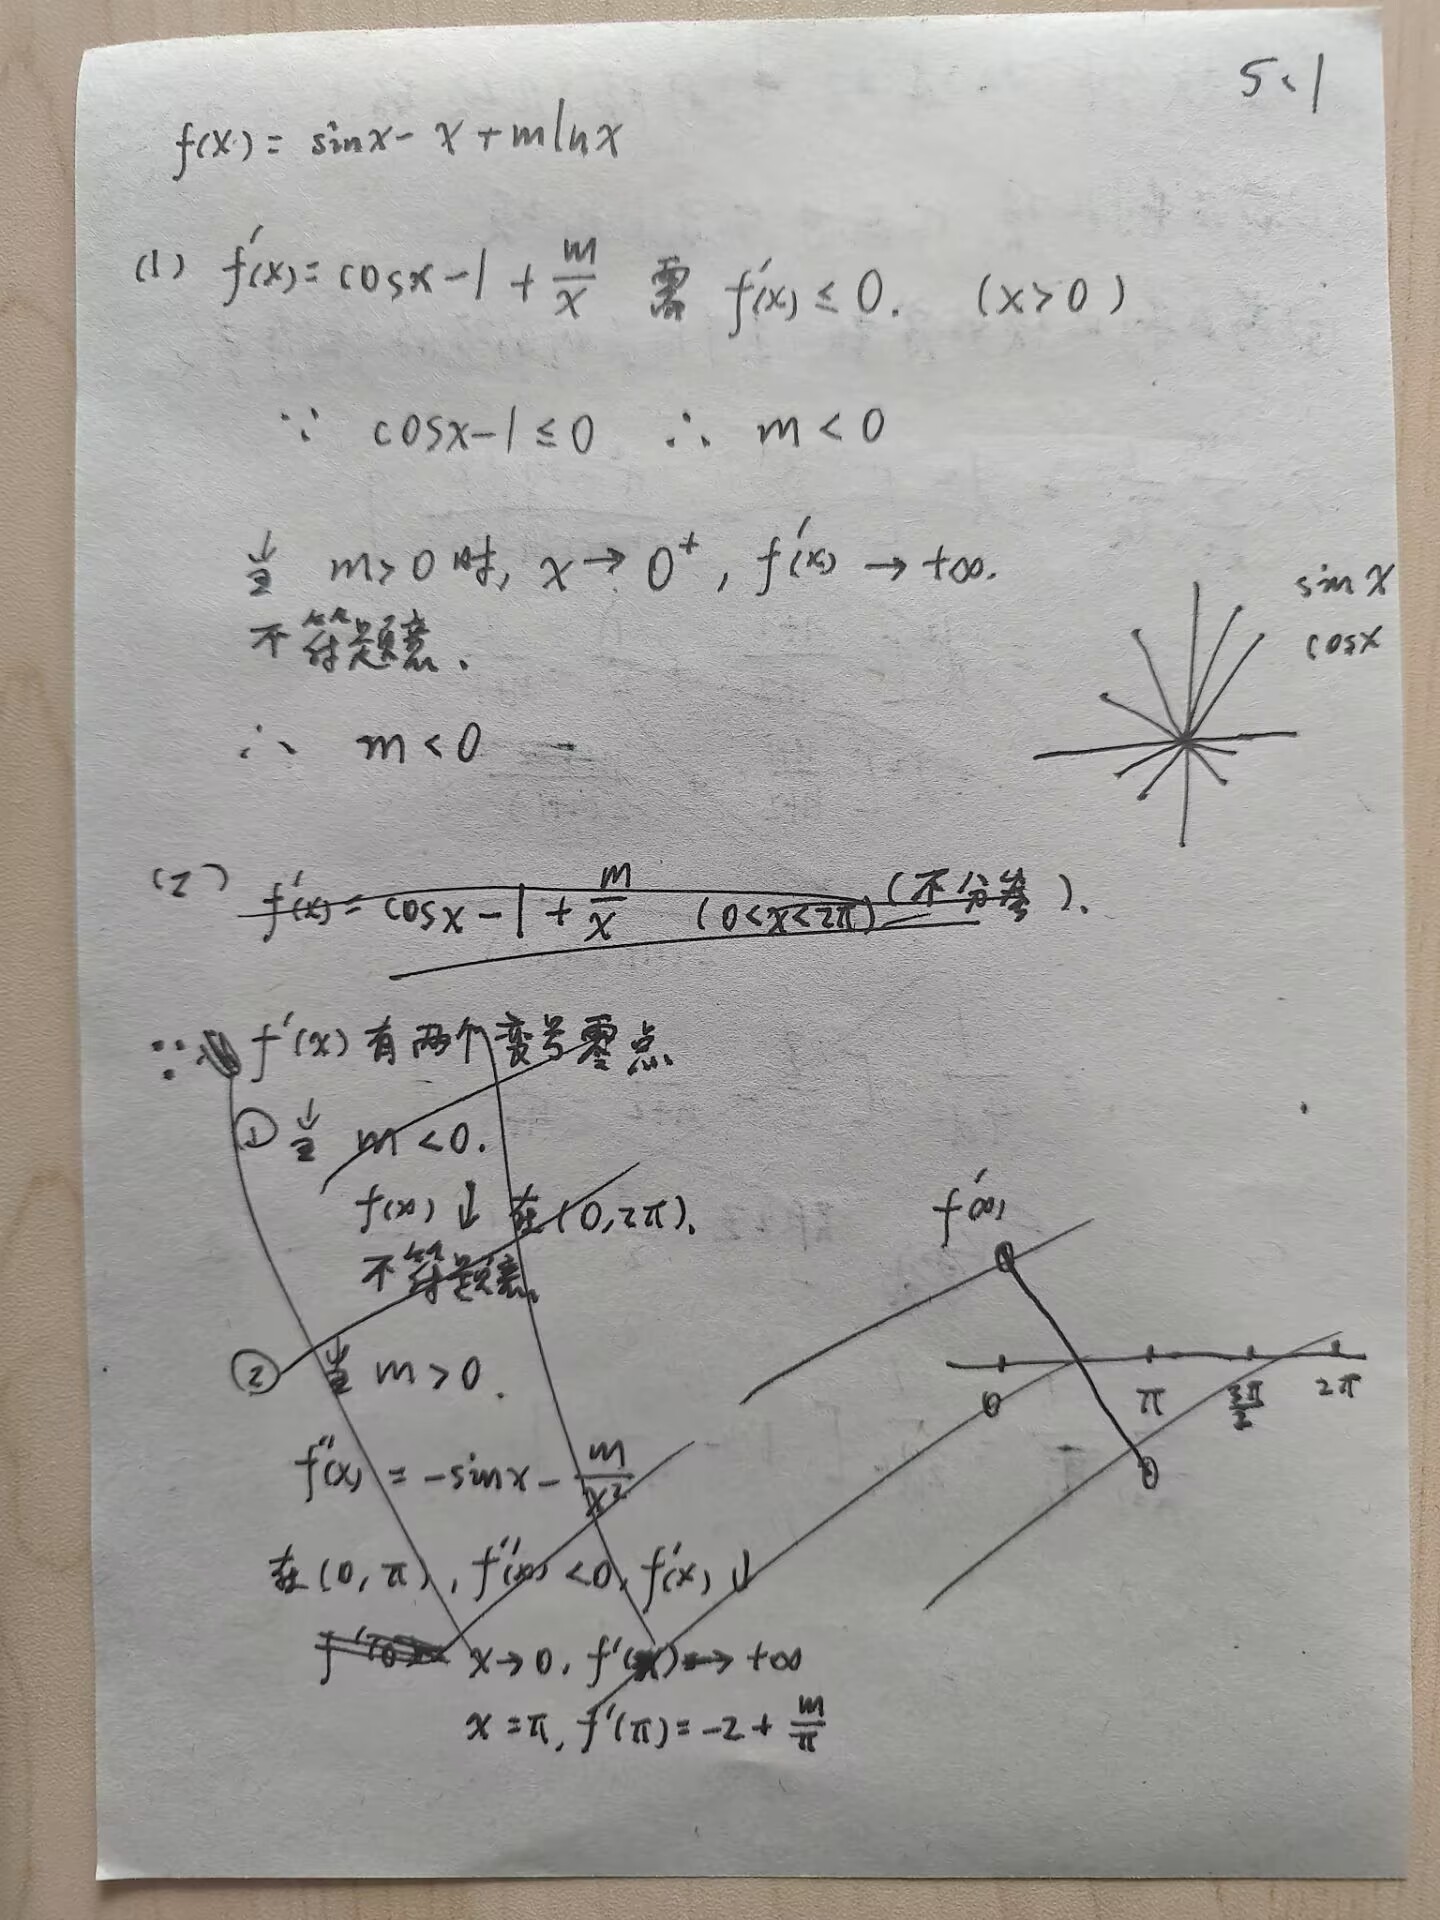 5.1
f(x) = sinx - x + mlnx
(1) f'(x) = cosx - 1 + m/x 需 f'(x) ≤ 0. (x>0)
∵ cosx - 1 ≤ 0 ∴ m < 0
当 m>0 时, x → 0⁺, f'(x) → +∞.
不符题意.
sinx
cosx
∴ m < 0
(2) f'(x) = cosx - 1 + m/x (0<x<2π) (不分参).
∵ f'(x) 有两个变号零点
① 当 m < 0.
f(x) ↓ 在 (0, 2π).
不符题意.
② 当 m > 0.
f'(x)
0 π 3π/2 2π
f''(x) = -sinx - m/x²
在 (0, π), f''(x) < 0, f'(x) ↓
x → 0, f'(x) → +∞
x = π, f'(π) = -2 + m/π